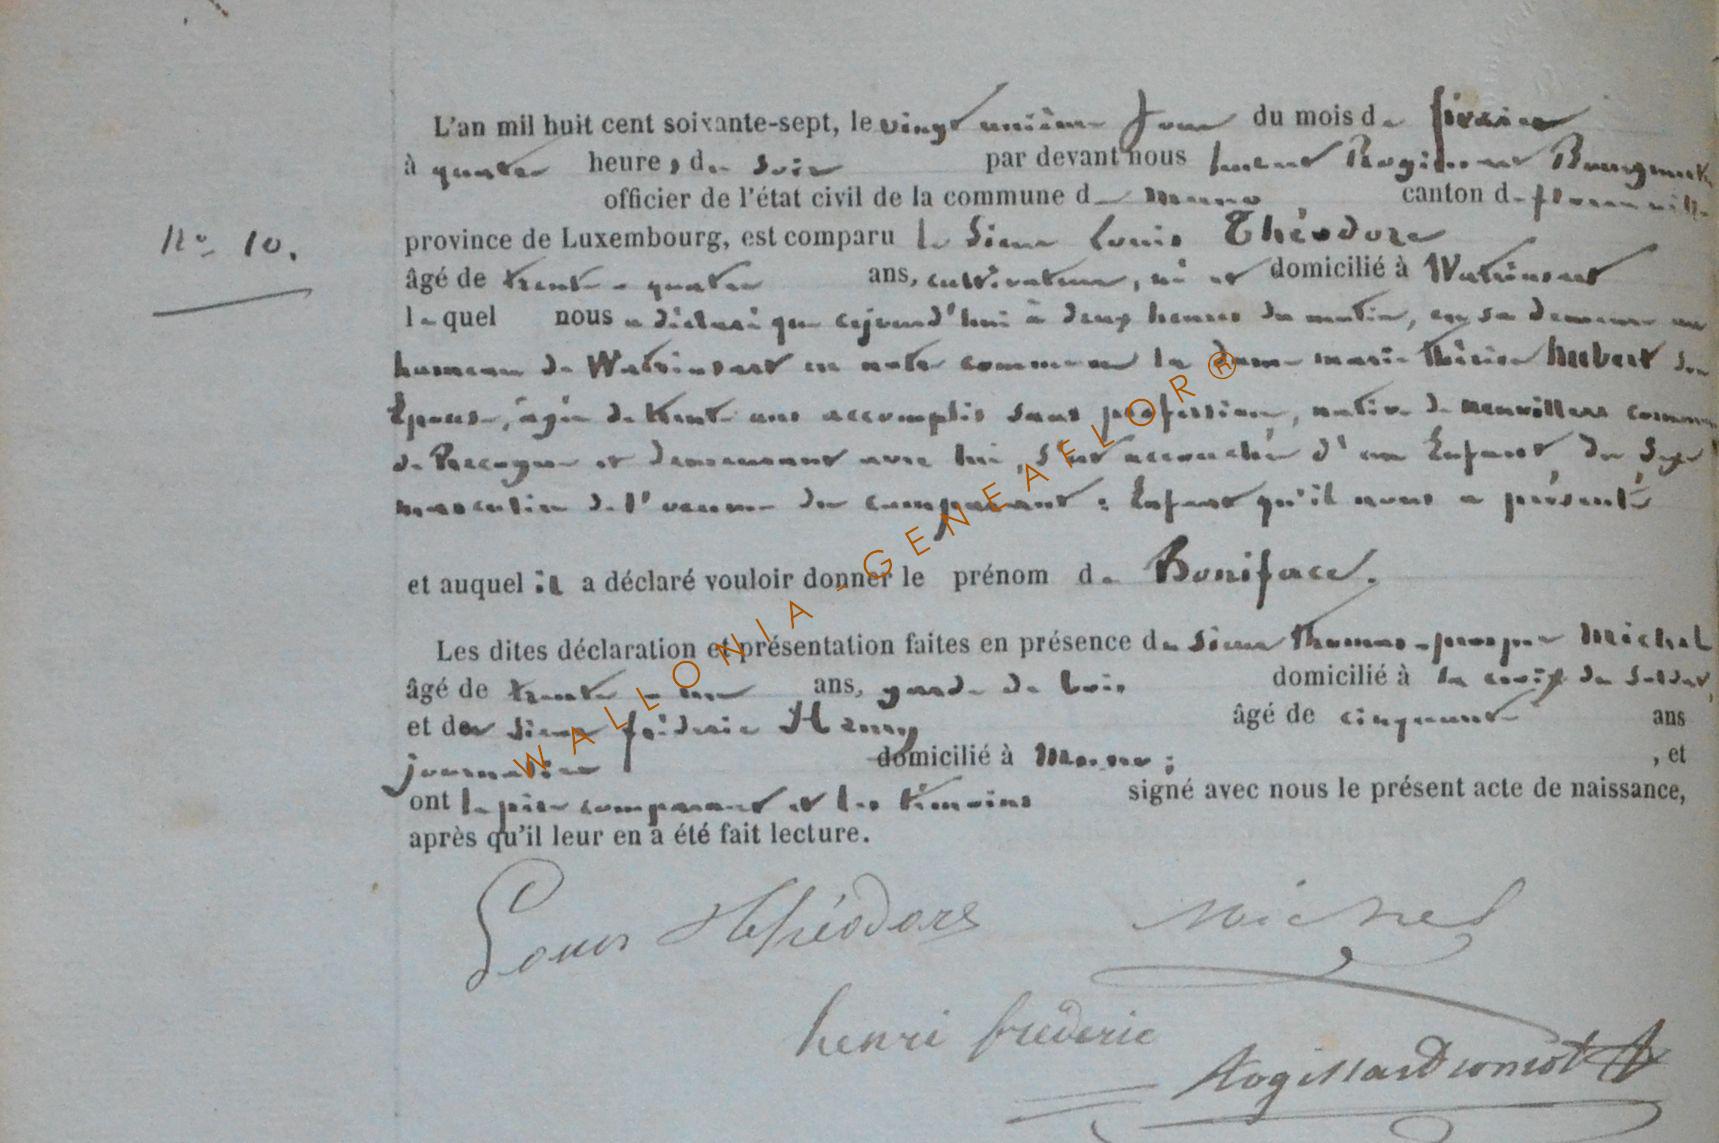 L'an mil huit cent soixante-sept, le vingt unième jour du mois de février
à quatre heures du soir par devant nous
officier de l'état civil de la commune de Muno canton de florenville
N° 10.
province de Luxembourg, est comparu le Sieur Louis Théodore
âgé de trente-quatre ans, cultivateur, né et domicilié à Watrinsart
lequel nous a déclaré que cejourd'hui à deux heures du matin, en sa demeure au
hameau de Watrinsart en notre commune la dame marie thérèse hubert son
Epouse, âgée de trente ans accomplis sans profession, native de neuvillers commune
de Recogne et demeurant avec lui, s'est accouchée d'un Enfant du Sexe
masculin de l'oeuvre du comparant : Enfant qu'il nous a présenté
et auquel il a déclaré vouloir donner le prénom de Boniface.
Les dites déclaration et présentation faites en présence du Sieur thomas-prosper Michel
âgé de trente-un ans, garde de bois domicilié à la du Soldat,
et du sieur fréderic Henry âgé de cinquante ans
journalier domicilié à Muno ; , et
ont le père comparant et les témoins signé avec nous le présent acte de naissance,
après qu'il leur en a été fait lecture.
Louis Théodore Michel
henri frederic
WALLONIA - GENEAFLOR®